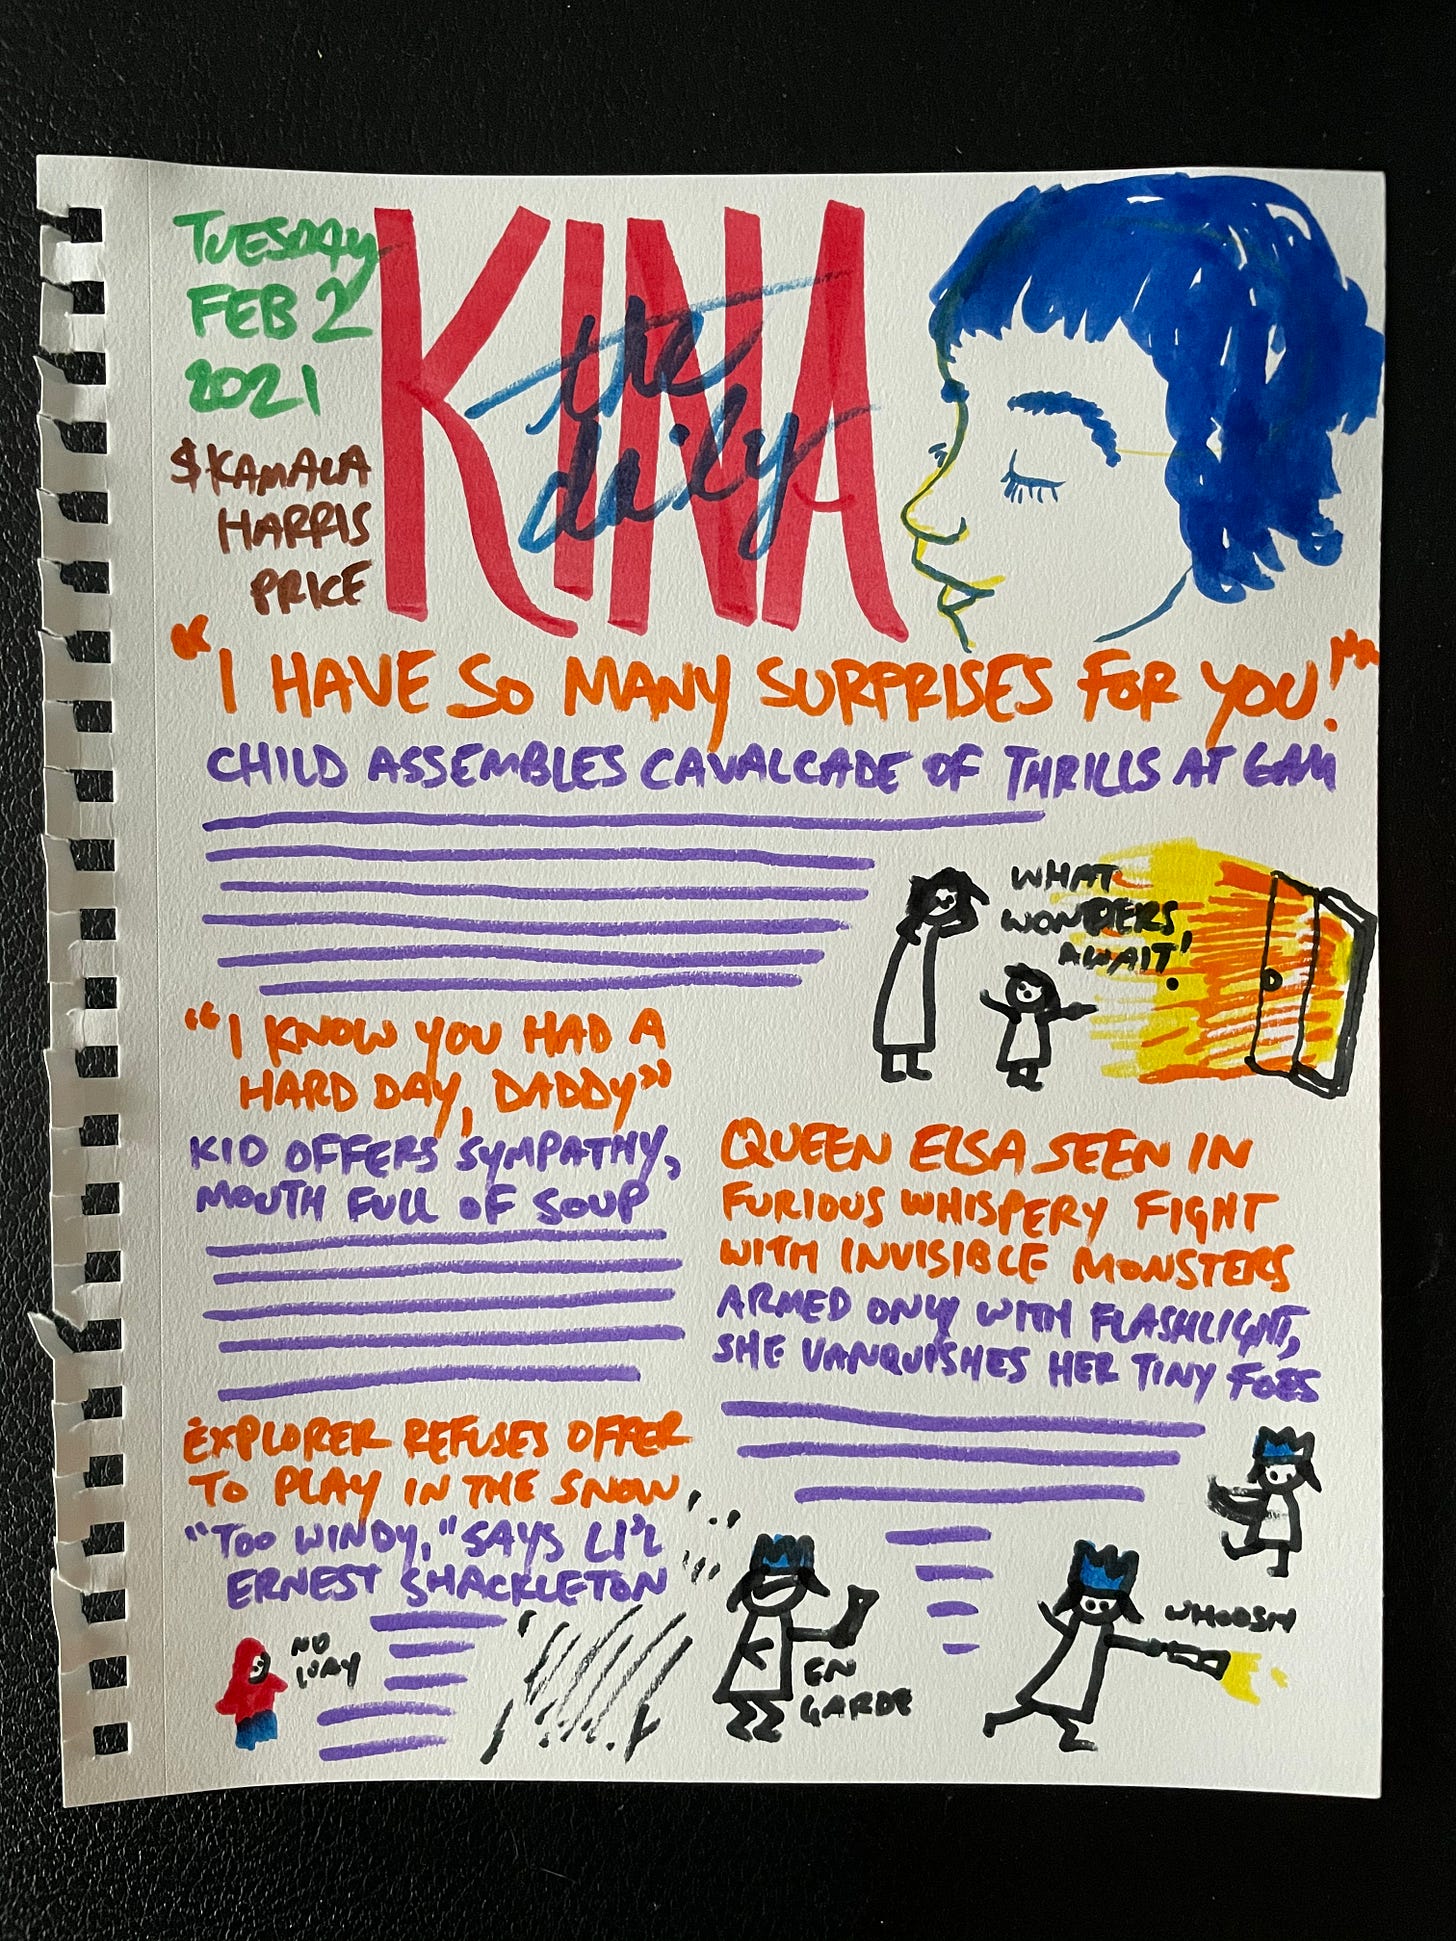 TUESDAY
FEB 2
2021
$KAMALA
HARRIS
PRICE
KINA
the
daily
"I HAVE SO MANY SURPRISES FOR YOU!"
CHILD ASSEMBLES CAVALCADE OF THRILLS AT 6AM
WHAT
WONDERS
AWAIT!
"I KNOW YOU HAD A
HARD DAY, DADDY"
KID OFFERS SYMPATHY,
MOUTH FULL OF SOUP
QUEEN ELSA SEEN IN
FURIOUS WHISPERY FIGHT
WITH INVISIBLE MONSTERS
ARMED ONLY WITH FLASHLIGHT,
SHE VANQUISHES HER TINY FOES
EXPLORER REFUSES OFFER
TO PLAY IN THE SNOW
"TOO WINDY," SAYS LI'L
ERNEST SHACKLETON
NO
WAY
EN
GARDE
WHOOSH